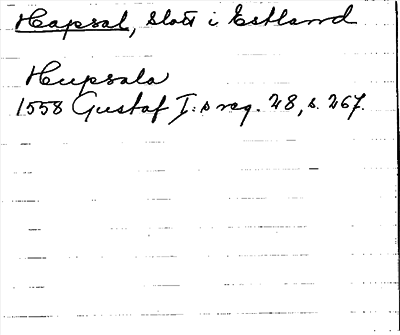 Hapsal, slott i Estland
Hupsala
1558 Gustaf I:s reg. 28, s. 267.